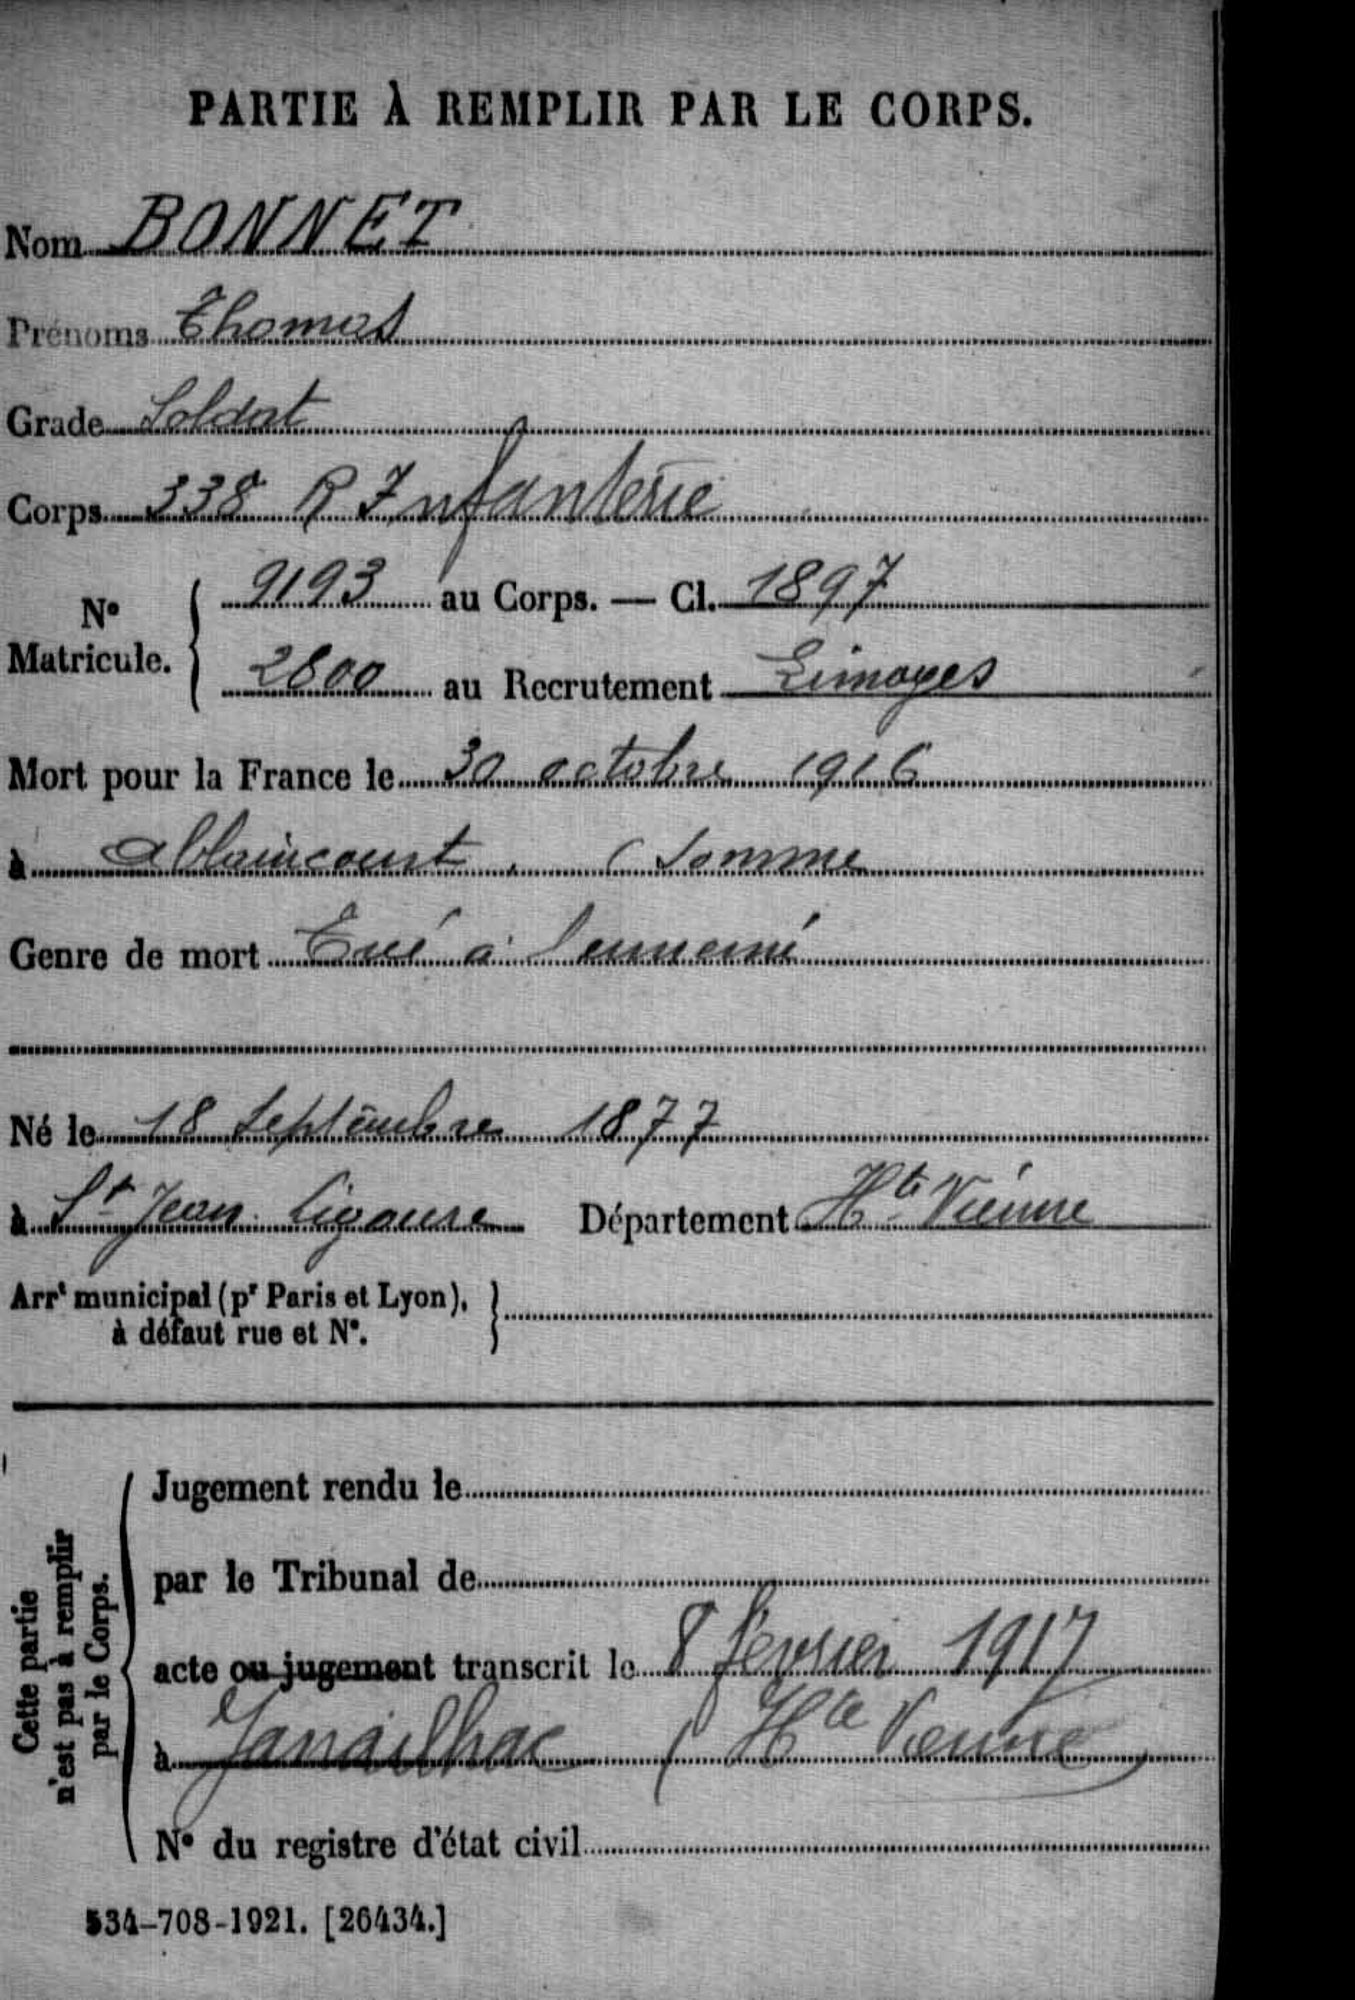 PARTIE À REMPLIR PAR LE CORPS.
Nom BONNET
Prénoms Thomas
Grade Soldat
Corps 338 R Infanterie
N° Matricule. { 9193 au Corps. — Cl. 1897
2800 au Recrutement Limoges
Mort pour la France le 30 octobre 1916
à Ablaincourt (Somme
Genre de mort Tué à l'ennemi
Né le 18 Septembre 1877
à St Jean Ligoure Département Hte Vienne
Arrt municipal (pr Paris et Lyon), }
à défaut rue et N°.
Cette partie
n'est pas à remplir
par le Corps.
Jugement rendu le
par le Tribunal de
acte ou jugement transcrit le 8 février 1917
à Janailhac (Hte Vienne)
N° du registre d'état civil
534-708-1921. [26434.]